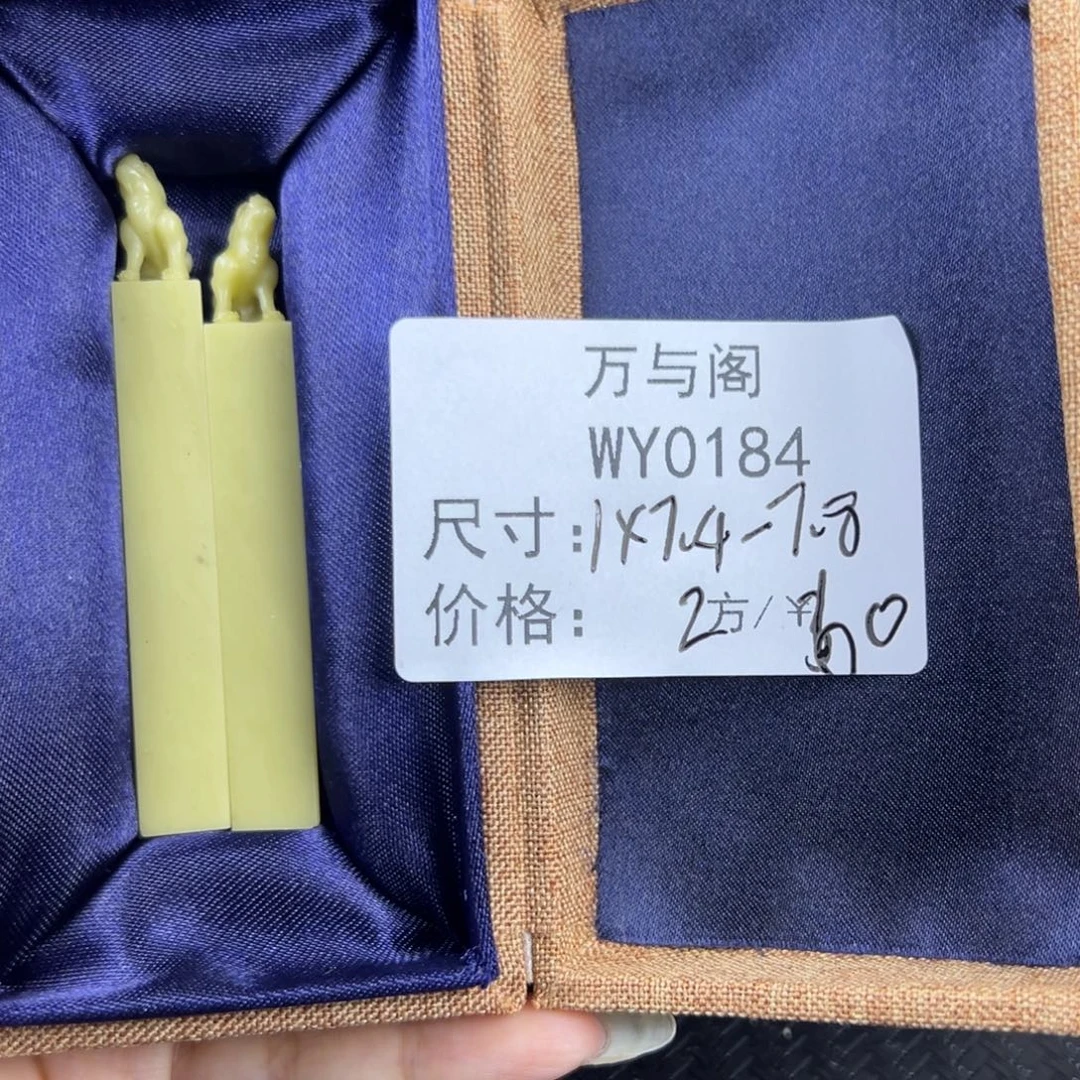 万与阁
WY0184
尺寸:1×7.4-7.8
价格: 2方/¥60